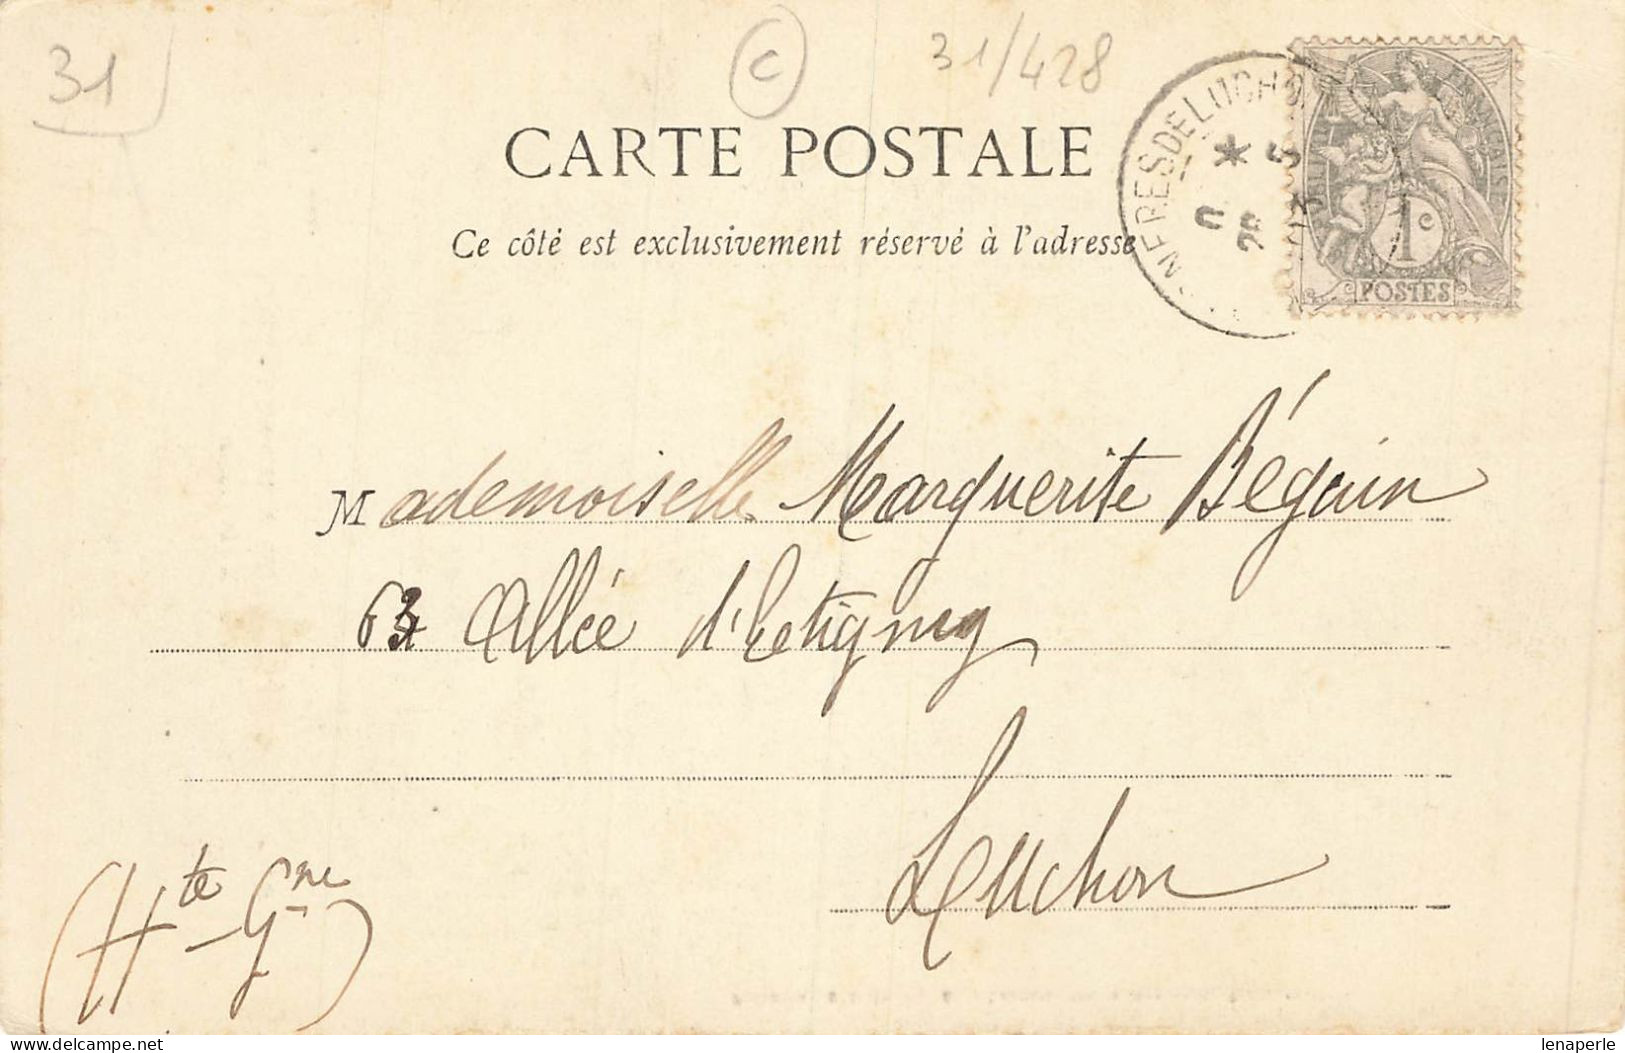 31
C
31/428
CARTE POSTALE
Ce côté est exclusivement réservé à l'adresse
NERES DE LUCHO
5
28
03
RÉPUBLIQUE FRANÇAISE
1c
POSTES
Mademoiselle Marguerite Béguin
63 Allée d'Etigny
Luchon
(Hte-Gne)
Delcampe.net
lenaperle